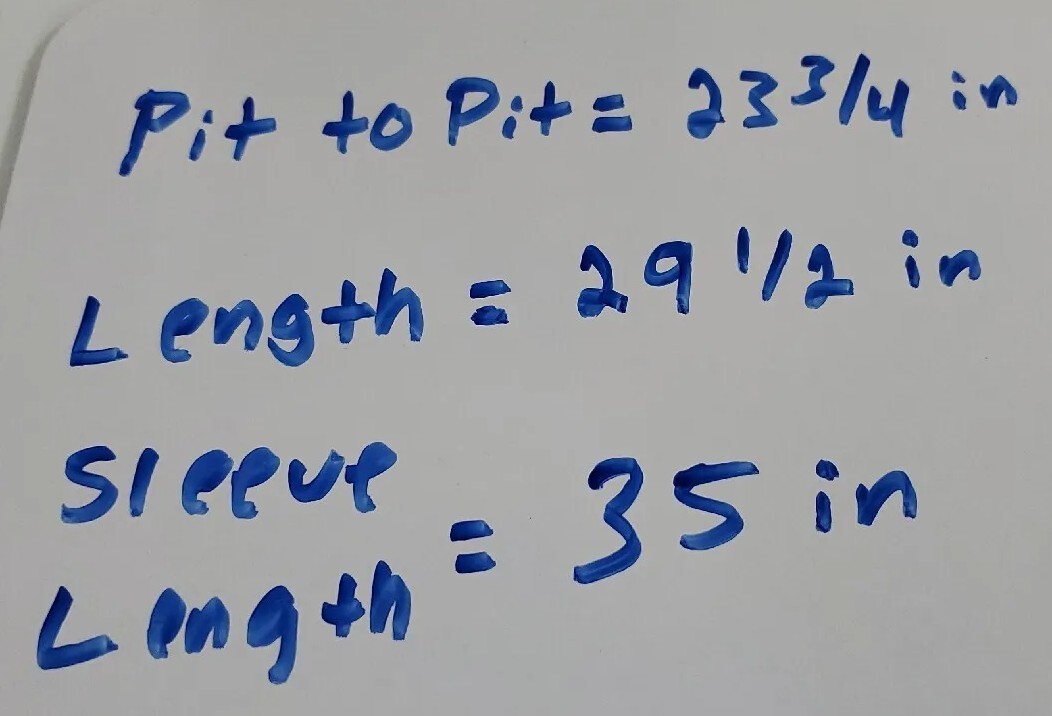 Pit to Pit = 23 3/4 in
Length = 29 1/2 in
Sleeve
Length = 35 in